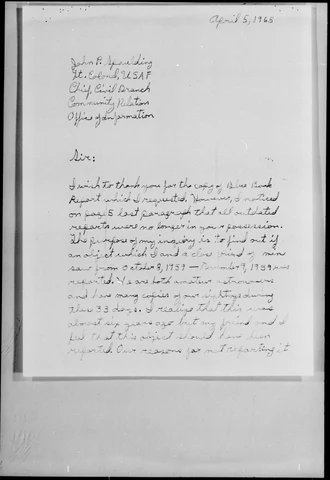 April 5, 1965
John P. Spaulding
Lt. Colonel, USAF
Chief, Civil Branch
Community Relations
Office of Information
Sir:
I wish to thank you for the copy of Blue Book
Report which I requested. However, I noticed
on page 5 last paragraph that all outdated
reports were no longer in your possession.
The purpose of my inquiry is to find out if
an object which I and a close friend of mine
saw from October 8, 1959 — November 9, 1959 are
reported. We are both amateur astronomers
and have many copies of our sightings during
those 33 days. I realize that this was
almost six years ago but my friend and I
felt that this object should have been
reported. Our reasons for not reporting it